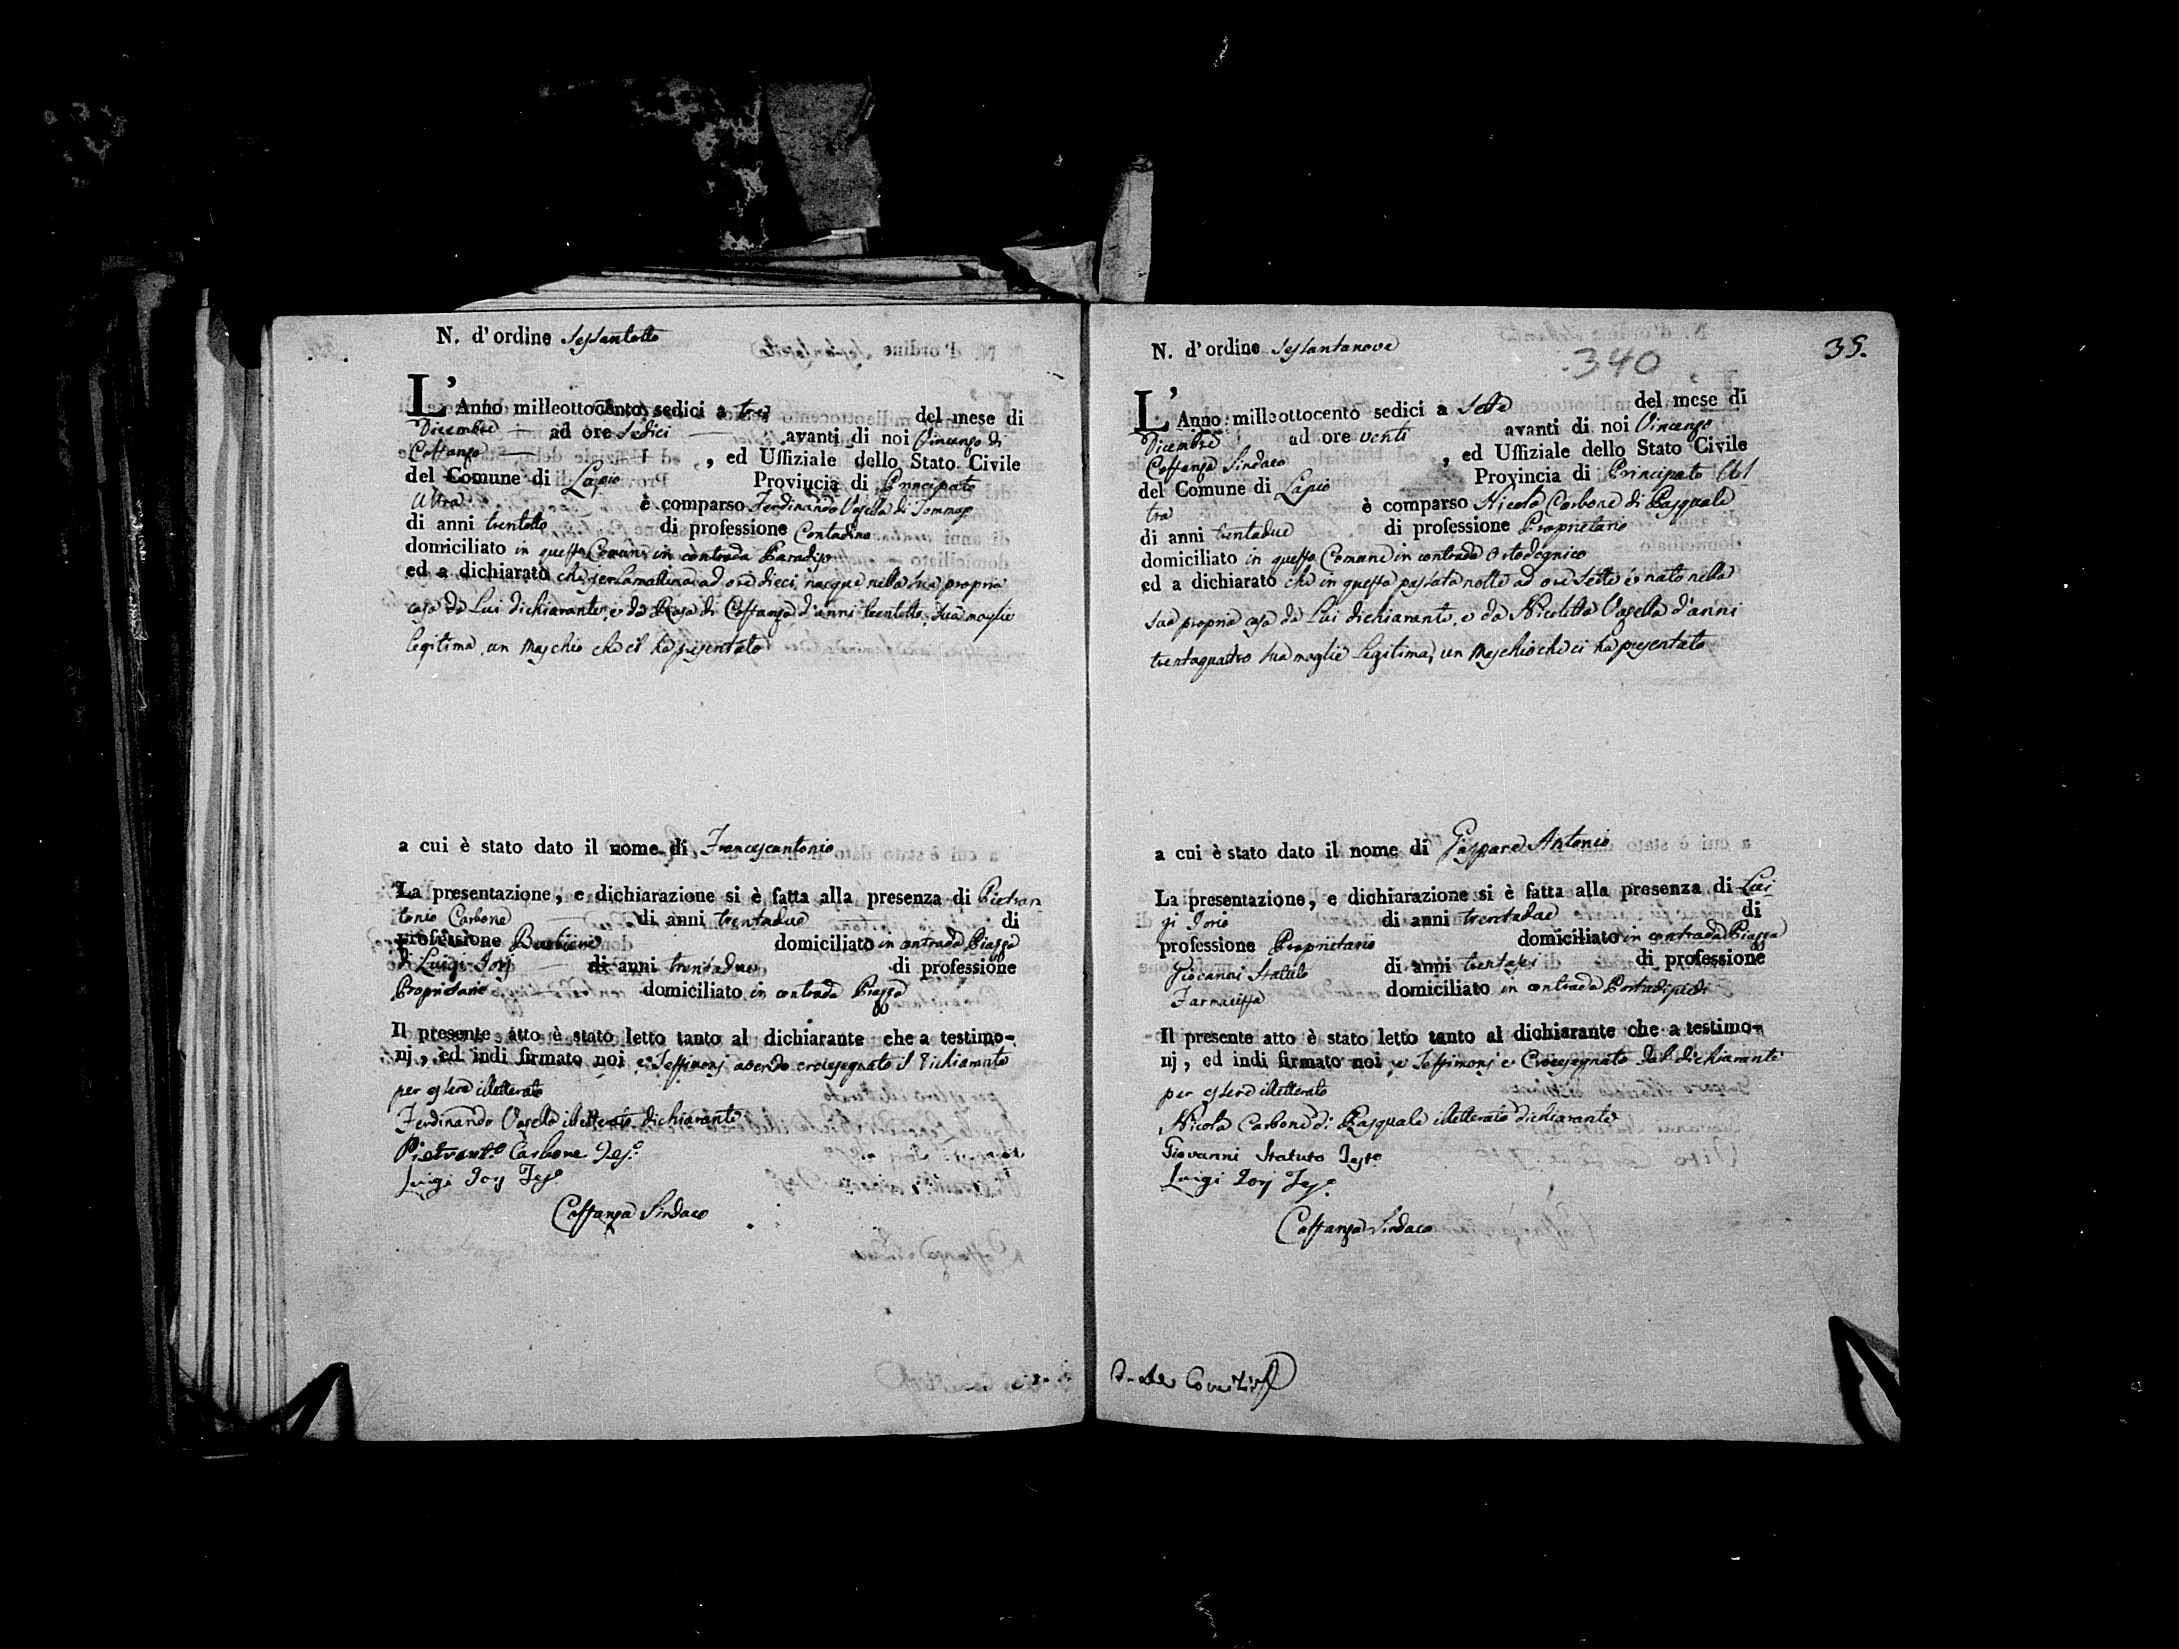 N. d'ordine Sessantotto
L'Anno milleottocento sedici a tre del mese di
Dicembre ad ore Sedici avanti di noi Vincenzo di
Costanzo , ed Uffiziale dello Stato Civile
del Comune di Lapio Provincia di Principato
Ultra è comparso Ferdinando Vasella di Tommaso
di anni trentotto di professione Contadino
domiciliato in questo Comune in contrada Paradiso
ed a dichiarato che jeri mattina ad ore dieci nacque nella sua propria
casa da Lui dichiarante, e da Rosa di Costanza d'anni trentotto, sua moglie
legitima, un Maschio che ci ha presentato
a cui è stato dato il nome di Francescantonio
La presentazione, e dichiarazione si è fatta alla presenza di Pietran
tonio Carbone di anni trentadue di
professione Barbiere domiciliato in contrada Piazza
di Luigi Iorj di anni trentadue di professione
Proprietario domiciliato in contrada Piazza
Il presente atto è stato letto tanto al dichiarante che a testimo-
nj, ed indi firmato noi e Testimonj avendo crocesegnato il Dichiarante
per essere illetterato
Ferdinando Vasella illetterato dichiarante
Pietrant.o Carbone Tes.o
Luigi Iorj Tes.o
Costanza Sindaco
N. d'ordine Sessantanove
340
35.
L'Anno milleottocento sedici a Sette del mese di
Dicembre ad ore venti avanti di noi Vincenzo
Costanza Sindaco , ed Uffiziale dello Stato Civile
del Comune di Lapio Provincia di Principato Ul
tra è comparso Nicola Carbone di Pasquale
di anni trentadue di professione Proprietario
domiciliato in questo Comune in contrada Ortodognico
ed a dichiarato che in questa passata notte ad ore Sette è nato nella
sua propria casa da Lui dichiarante, e da Nicoletta Vasella d'anni
trentaquattro sua moglie legitima, un Maschio che ci ha presentato
a cui è stato dato il nome di Gaspare Antonio
La presentazione, e dichiarazione si è fatta alla presenza di Lui
gi Iorio di anni trentadue di
professione Proprietario domiciliato in contrada Piazza
Giovanni Statuto di anni trentasei di professione
Farmacista domiciliato in contrada Portadipiedi
Il presente atto è stato letto tanto al dichiarante che a testimo-
nj, ed indi firmato noi, e Testimonj e Crocesegnato dal dichiarante
per essere illetterato
Nicola Carbone di Pasquale illetterato dichiarante
Giovanni Statuto Test.e
Luigi Iorj Tes.o
Costanza Sindaco